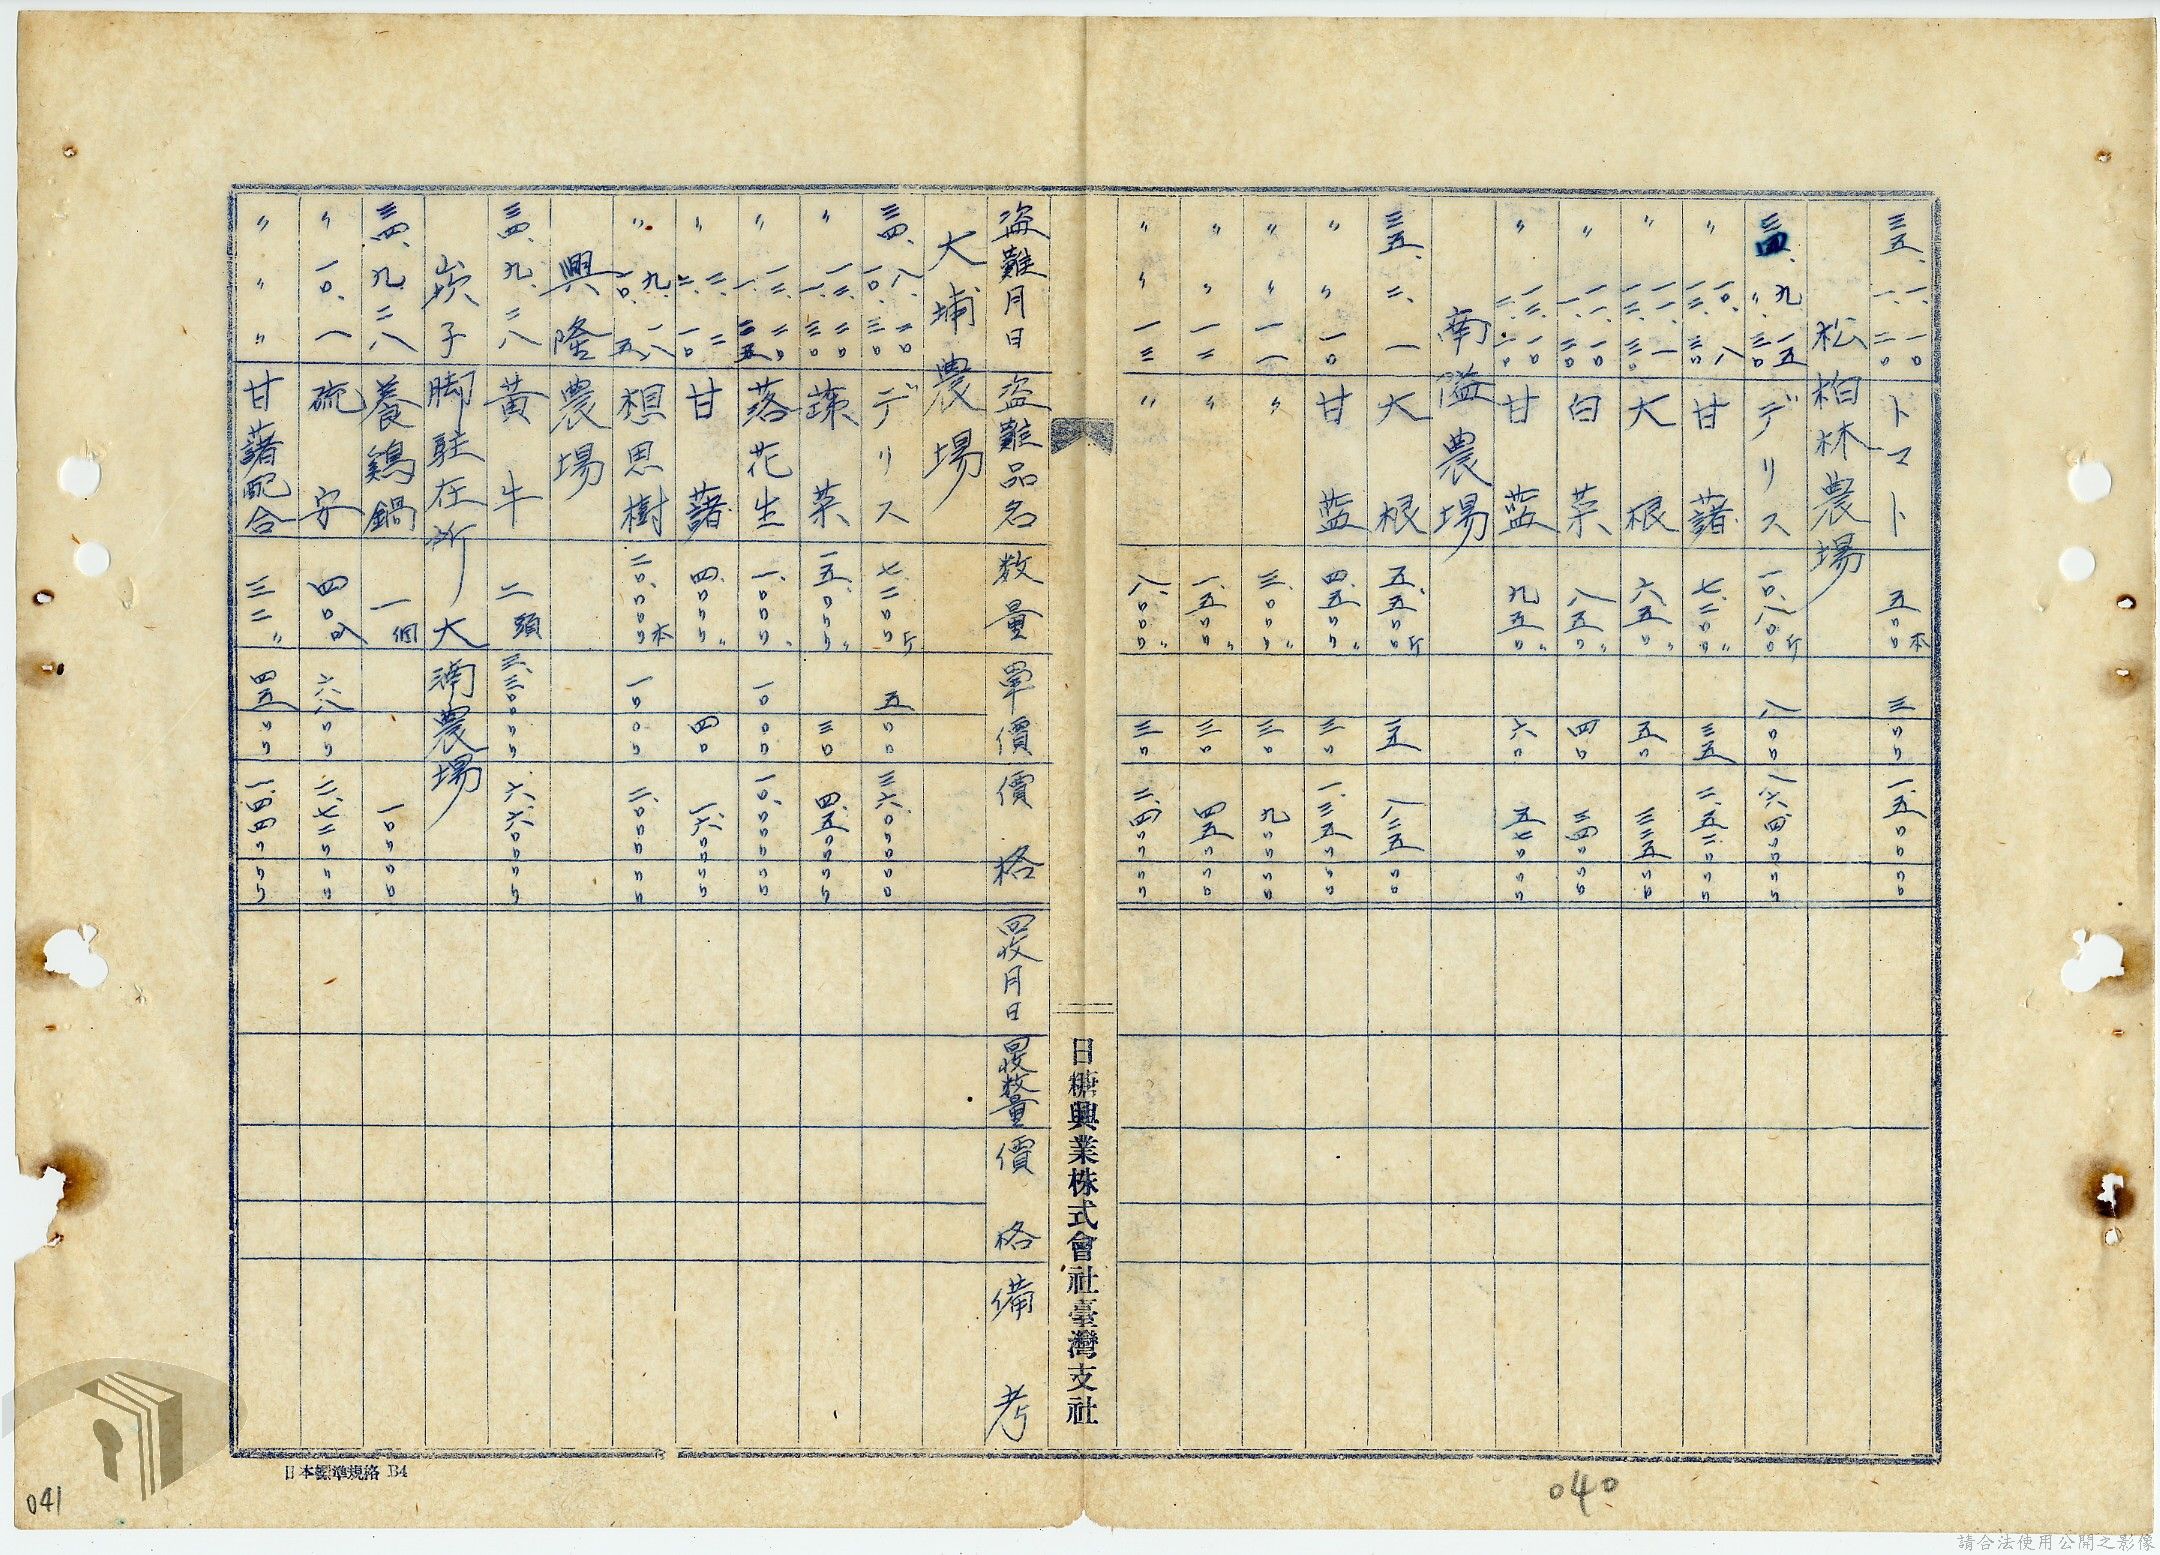 三五、一、一〇 一、二〇 トマト 五〇〇本 三〇〇 一、五〇〇〇〇
松柏林農場
三四、九、一五 〃三〇 デリス 一〇、八〇〇斤 八〇〇 八六、四〇〇〇〇
〃 一〇、八 一二、三〇 甘藷 七、二〇〇〃 三五 二、五二〇〇〇
〃 大根 六五〇〃 五〇 三二五〇〇
〃 白菜 八五〇〃 四〇 三四〇〇〇
〃 甘藍 九五〇〃 六〇 五七〇〇〇
南隘農場
三五、二、一 大根 五、五〇〇斤 一五 八二五〇〇
〃 〃 一〇 甘藍 四、五〇〇〃 三〇 一、三五〇〇〇
〃 〃 一一 〃 三、〇〇〇〃 三〇 九〇〇〇〇
〃 〃 一二 〃 一、五〇〇〃 三〇 四五〇〇〇
〃 〃 一三 〃 八、〇〇〇〃 三〇 二、四〇〇〇〇
日糖興業株式會社臺灣支社
盜難月日 盜難品名 数量 單價 價格 回收月日 回收数量 價格 備考
大埔農場
三四、八、二〇 一〇、三〇 デリス 七、二〇〇斤 五〇〇 三六、〇〇〇〇〇
〃 蔬菜 一五、〇〇〇〃 三〇 四、五〇〇〇〇
〃 落花生 一、〇〇〇〃 一〇〇〇 一〇、〇〇〇〇〇
〃 二、二 二、一〇 甘藷 四、〇〇〇〃 四〇 一、六〇〇〇〇
〃 九、一八 一〇、五 想思樹 二〇、〇〇〇本 一〇〇〇
興隆農場
三四、九、二八 黃牛 二頭 三、三〇〇〇〇 六、六〇〇〇〇
崁子脚駐在所大湳農場
三四、九、二八 養鷄鍋 一個 一〇〇〇〇
〃 一〇、一 硫安 四〇叺 六八〇〇 二、七二〇〇〇
〃 〃 〃 甘藷配合 三二〃 四五〇〇 一、四四〇〇〇
日本標準規格 B4
041
040
請合法使用公開之影像